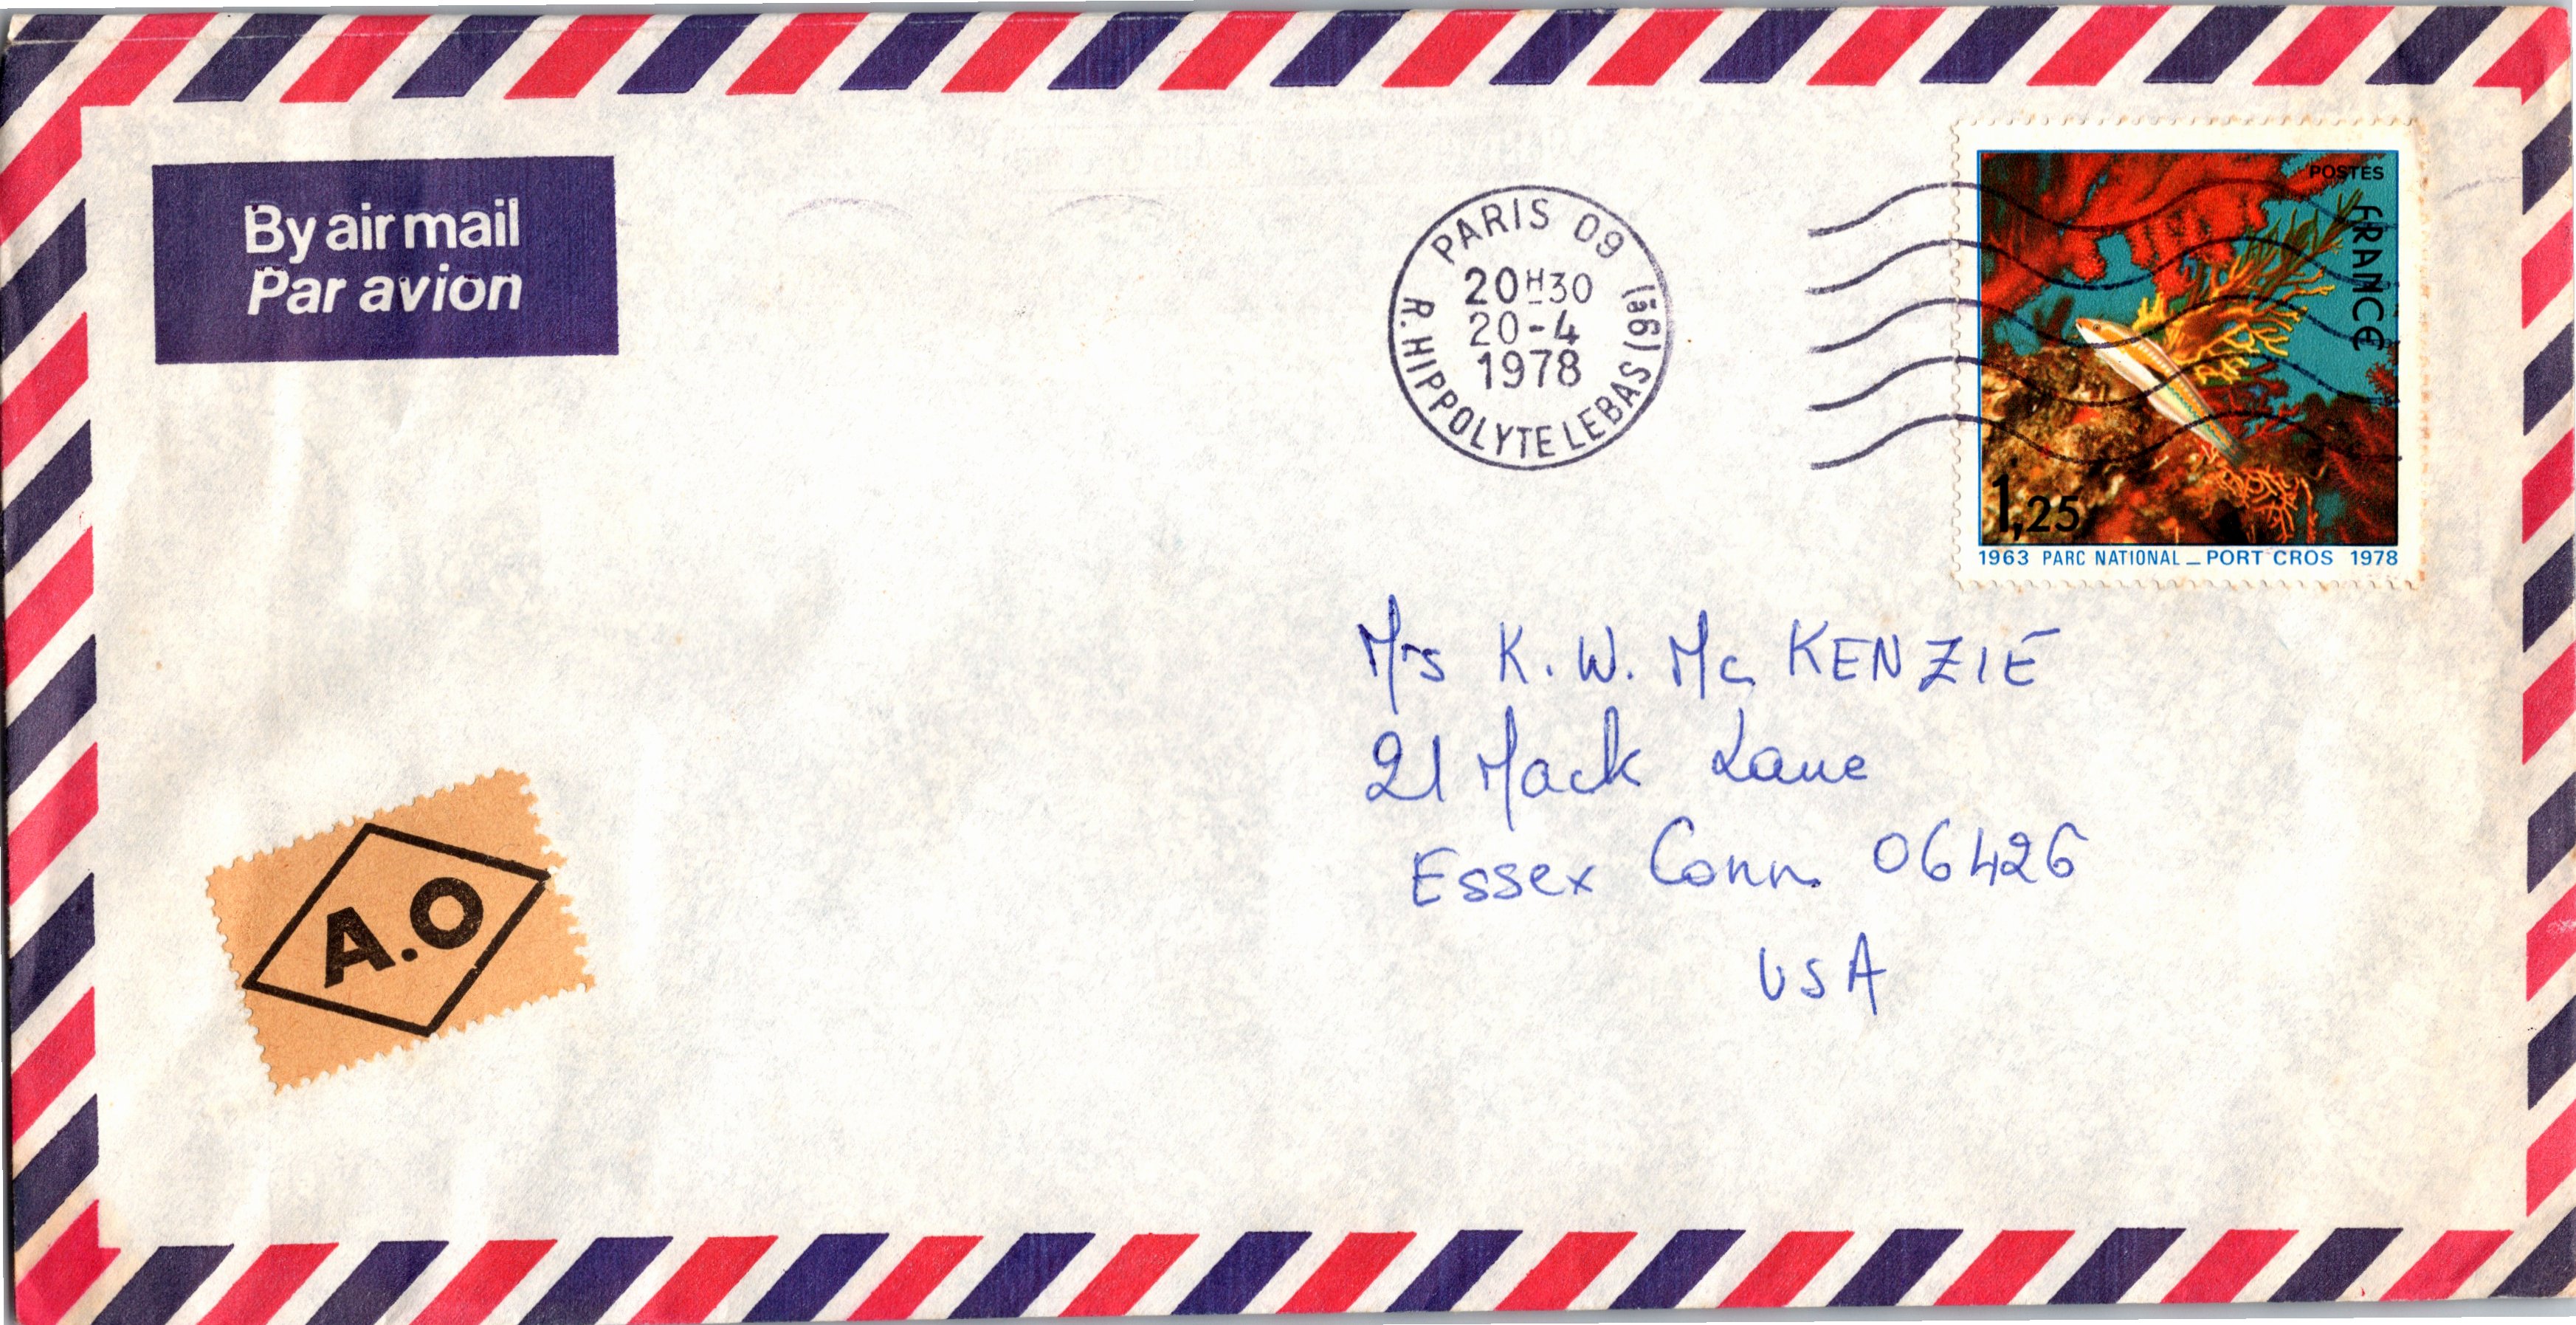 By air mail
Par avion
PARIS 09
20H30
20-4
1978
R. HIPPOLYTE LEBAS (9e)
POSTES
FRANCE
1,25
1963 PARC NATIONAL_PORT CROS 1978
Mrs K. W. Mc KENZIE
21 Mack Lane
Essex Conn. 06426
USA
A.O